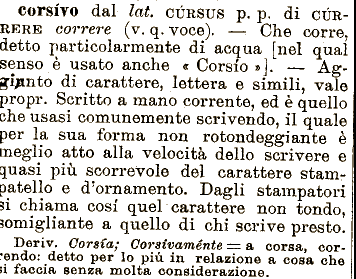 corsívo dal lat. CÚRSUS p. p. di CÚR-
RERE correre (v. q. voce). — Che corre,
detto particolarmente di acqua [nel qual
senso è usato anche « Corsío »]. — Ag-
giunto di carattere, lettera e simili, vale
propr. Scritto a mano corrente, ed è quello
che usasi comunemente scrivendo, il quale
per la sua forma non rotondeggiante è
meglio atto alla velocità dello scrivere e
quasi più scorrevole del carattere stam-
patello e d'ornamento. Dagli stampatori
si chiama cosí quel carattere non tondo,
somigliante a quello di chi scrive presto.
Deriv. Corsía; Corsivaménte = a corsa, cor-
rendo: detto per lo più in relazione a cosa che
si faccia senza molta considerazione.